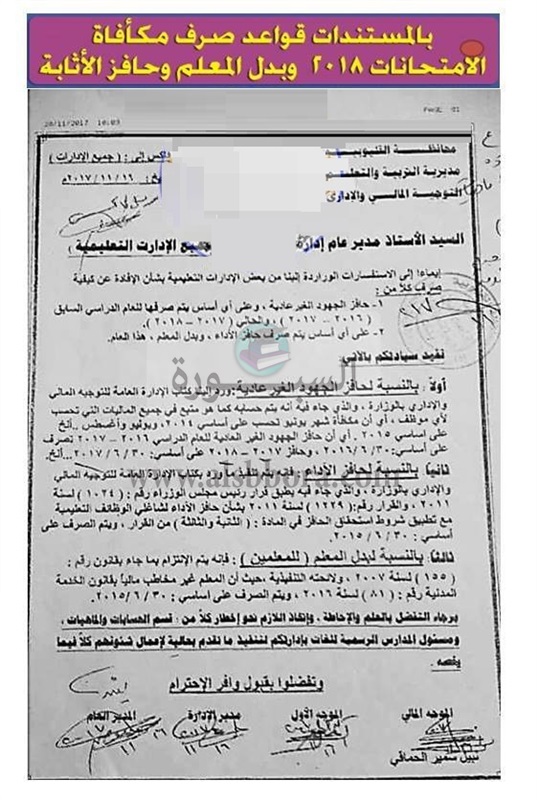 بالمستندات قواعد صرف مكأفاة
الامتحانات ٢٠١٨ وبدل المعلم وحافز الأثابة
20/11/2017 10:03
PAGE 01
محافظة القليوبية
مديرية التربية والتعليم
التوجية المالي والإداري
فاكس إلى : ( جميع الإدارات )
٢٠١٧/١١/١٦م
السيد الأستاذ مدير عام إدارة
جميع الإدارت التعليمية )
إيماءا إلى الاستفسارات الواردة إلينا من بعض الإدارات التعليمية بشأن الإفادة عن كيفية
صرف كلاً من :
١- حافز الجهود الغير عادية ، وعلى أي أساس يتم صرفها للعام الدراسي السابق
( ٢٠١٦ - ٢٠١٧ ) ، والحالي ( ٢٠١٧ - ٢٠١٨ ) .
٢- على أي أساس يتم صرف حافز الأداء ، وبدل المعلم ، هذا العام.
نفيد سيادتكم بالأتي :
السبورة
www.alsbbora.com
أولاً : بالنسبة لحافز الجهود الغير عادية: ورد إلينا كتاب الإدارة العامة للتوجيه المالي
والإداري بالوزارة ، والذي جاء فيه أنه يتم حسابه كما هو متبع في جميع الماليات التي تحسب
لأي موظف ، أي أن مكافأة شهر يونيو تحسب على أساسي ٢٠١٤ ، ويوليو وأغسطس ..ألخ
على اساسي ٢٠١٥ . أي أن حافز الجهود الغير العادية للعام الدراسي ٢٠١٦ - ٢٠١٧ تصرف
على أساسي: ٢٠١٦/٦/٣٠ ، وحافز ٢٠١٧ - ٢٠١٨ على أساسي : ٢٠١٧/٦/٣٠...ألخ.
ثانياً : بالنسبة لحافز الأداء: فإنه يتم تنفيذ ما ورد بكتاب الإدارة العامة للتوجيه المالي
والإداري بالوزارة ، والذي جاء فيه يطبق قرار رئيس مجلس الوزراء رقم : ( ١٠٢٤ ) لسنة
٢٠١١ ، والقرار رقم: ( ١٢٢٩ ) لسنة ٢٠١١ بشأن حافز الأداء لشاغلي الوظائف التعليمية
مع تطبيق شروط استحقاق الحافز في المادة : ( الثانية والثالثة ) من القرار ، ويتم الصرف على
أساسي : ٢٠١٥/٦/٣٠.
ثالثاً : بالنسبة لبدل المعلم ( للمعلمين ) : فإنه يتم الإلتزام بما جاء بقانون رقم :
( ١٥٥ ) لسنة ٢٠٠٧ ، ولائحته التنفيذية ،حيث أن المعلم غير مخاطب مالياً بقانون الخدمة
المدنية رقم : ( ٨١ ) لسنة ٢٠١٦ ، ويتم الصرف على أساسي : ٢٠١٥/٦/٣٠.
برجاء التفضل بالعلم والإحاطة ، وإتخاذ اللازم نحو إخطار كلاً من : قسم الحسابات والماهيات ،
ومسئول المدارس الرسمية للغات بإدارتكم لتنفيذ ما تقدم بعالية لإعمال شئونهم كلاً فيما
يخصه .
وتفضلوا بقبول وافر الإحترام
الموجه المالي
الموجه الأول
مدير الإدارة
المدير العام
نبيل سمير الحماقي